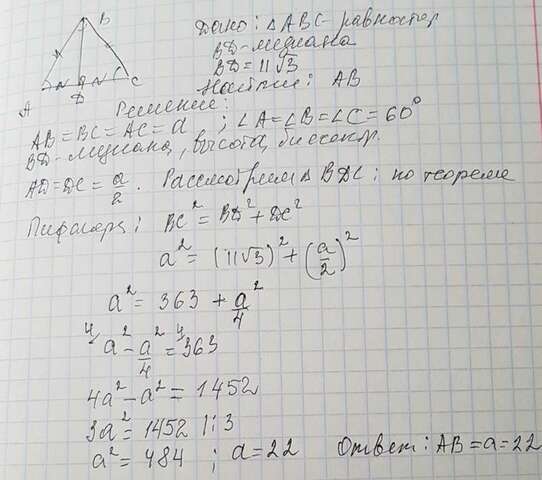 B
A D C
Дано: △ABC-равностор
BD-медиана
BD = 11√3
Найти: AB
Решение:
AB = BC = AC = a ; ∠A=∠B=∠C = 60°
BD-медиана, высота, биссектр.
AD=DC= a/2. Рассмотрим △ BDC: по теореме
Пифагора: BC² = BD² + DC²
a² = (11√3)² + (a/2)²
a² = 363 + a²/4
4 4
a² - a²/4 = 363
4a² - a² = 1452
3a² = 1452 |:3
a² = 484 ; a = 22 Ответ: AB = a = 22